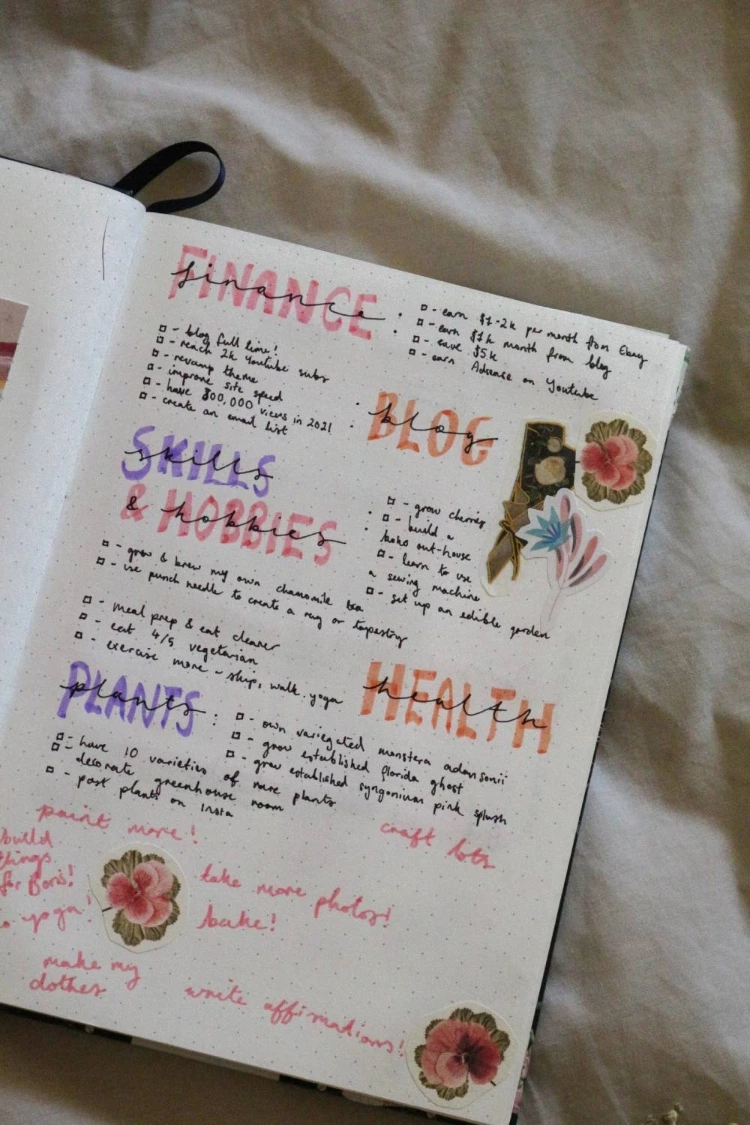 FINANCE
finance
- earn $1-2k per month from Ebay
- earn $1k month from blog
- save $5k
- earn Adsense on Youtube
- blog full time!
- reach 2k Youtube subs
- revamp theme
- improve site speed
- have 800,000 views in 2021
- create an email list
BLOG
blog
SKILLS
skills
& HOBBIES
& hobbies
- grow cherries
- build a
boho out-house
- learn to use
a sewing machine
- set up an edible garden
- grow & brew my own chamomile tea
- use punch needle to create a rug or tapestry
- meal prep & eat cleaner
- eat 4/5 vegetarian
- exercise more - skip, walk, yoga
HEALTH
health
PLANTS
plants
- own variegated monstera adansonii
- grow established florida ghost
- grow established syngonium pink splash
- have 10 varieties of rare plants
- decorate greenhouse room
- post plants on insta
paint more!
craft lots
build
things
for Boris!
take more photos!
yoga!
bake!
make my
clothes
write affirmations!